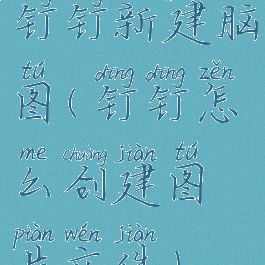 钉钉新建脑
tú dīng dīng zěn
图(钉钉怎
me chuàng jiàn tú
么创建图
piàn wén jiàn
片文件)